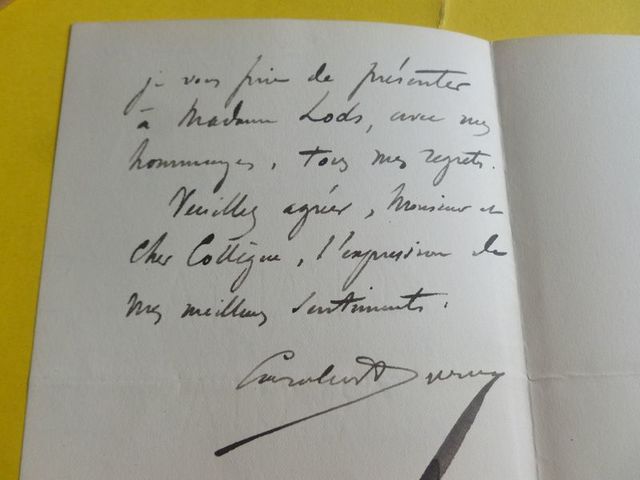 je vous prie de présenter
à Madame Lods, avec mes
hommages, tous mes regrets.
Veuillez agréer, Monsieur et
cher Collègue, l'expression de
mes meilleurs sentiments.